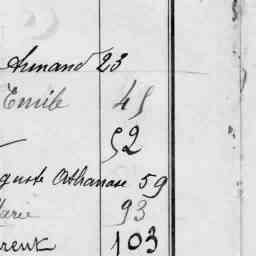 Armand 23
Emile 45
52
guste Athanase 59
Marie 93
rent 103